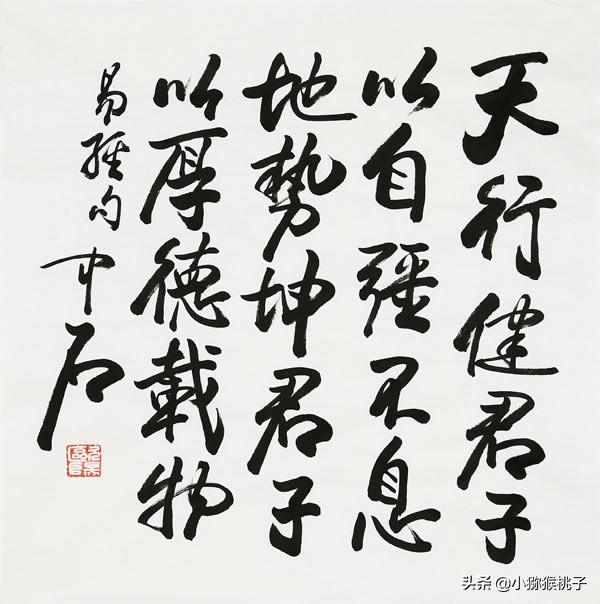 天行健君子
以自彊不息
地势坤君子
以厚德載物
易經句 中石
头条 @小猕猴桃子